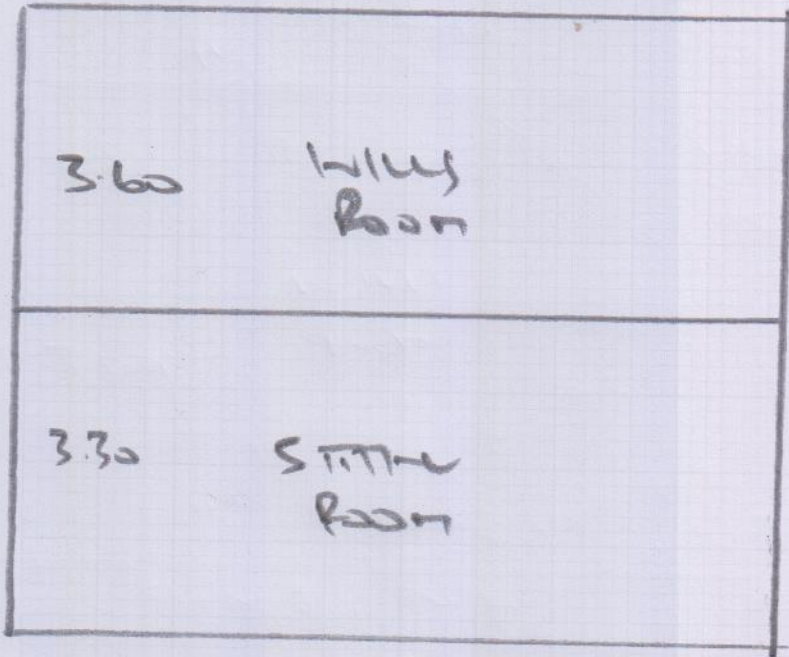 3.60
WILLS
ROOM
3.30
SITTING
ROOM